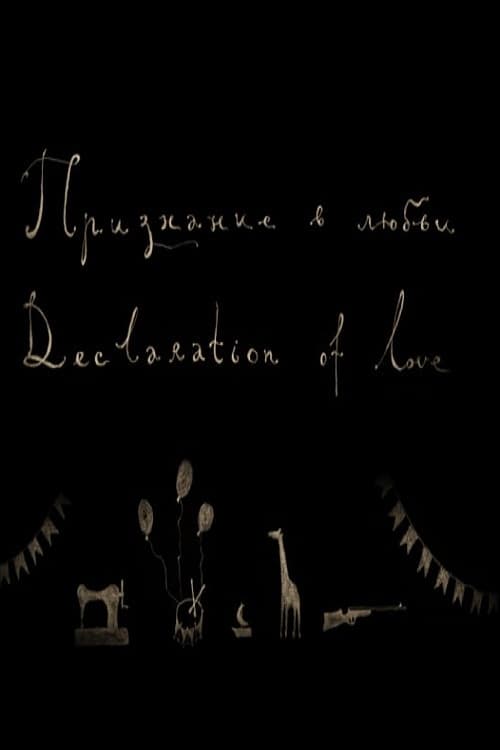 Признание в любви
Declaration of love